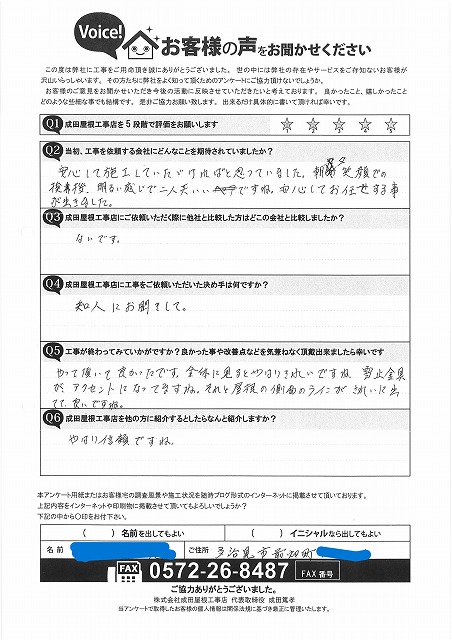 Voice!
お客様の声をお聞かせください
この度は弊社に工事をご用命頂き誠にありがとうございました。世の中には弊社の存在やサービスをご存知ないお客様が
沢山いらっしゃいます。その方たちに弊社をよく知って頂くためのアンケートにご協力頂けないでしょうか。
お客様のご意見をお聞かせいただき今後の活動に反映させていただきたいと考えております。良かったこと、嬉しかったこと
どのような些細な事でも結構です。是非ご協力お願い致します。出来るだけ具体的に書いて頂ければ幸いです。
Q1 成田屋根工事店を5段階で評価をお願いします ☆ ☆ ☆ ☆ ☆
Q2 当初、工事を依頼する会社にどんなことを期待されていましたか?
安心して施工していただければと思っていました。 笑顔での
挨拶、明るい感じで二人共いい ですね。安心してお任せする事
が出来ました。
Q3 成田屋根工事店にご依頼いただく際に他社と比較した方はどこの会社と比較しましたか?
ないです。
Q4 成田屋根工事店に工事をご依頼いただいた決め手は何ですか?
知人にお聞きして。
Q5 工事が終わってみていかがですか?良かった事や改善点などを気兼ねなく頂戴出来ましたら幸いです
やって頂いて良かったです。全体に見るとやはりきれいですね 雪止金具
が、アクセントになってますね。それと屋根の側面のラインがきれいに出
てて、良いですね。
Q6 成田屋根工事店を他の方に紹介するとしたらなんと紹介しますか?
やはり信頼ですね。
本アンケート用紙またはお客様宅の調査風景や施工状況を随時ブログ形式のインターネットに掲載させて頂いております。
上記内容をインターネットや印刷物に掲載させて頂いてもよろしいでしょうか?
下記の中から〇印をお付下さい。
( )名前を出してもよい ( )イニシャルなら出してもよい
名前 ご住所 多治見市前畑町
FAX 0572-26-8487 FAX番号
ご協力ありがとうございました。
株式会社成田屋根工事店 代表取締役 成田篤孝
当アンケートで取得したお客様の個人情報は関係法規に基づき厳正に管理いたします。